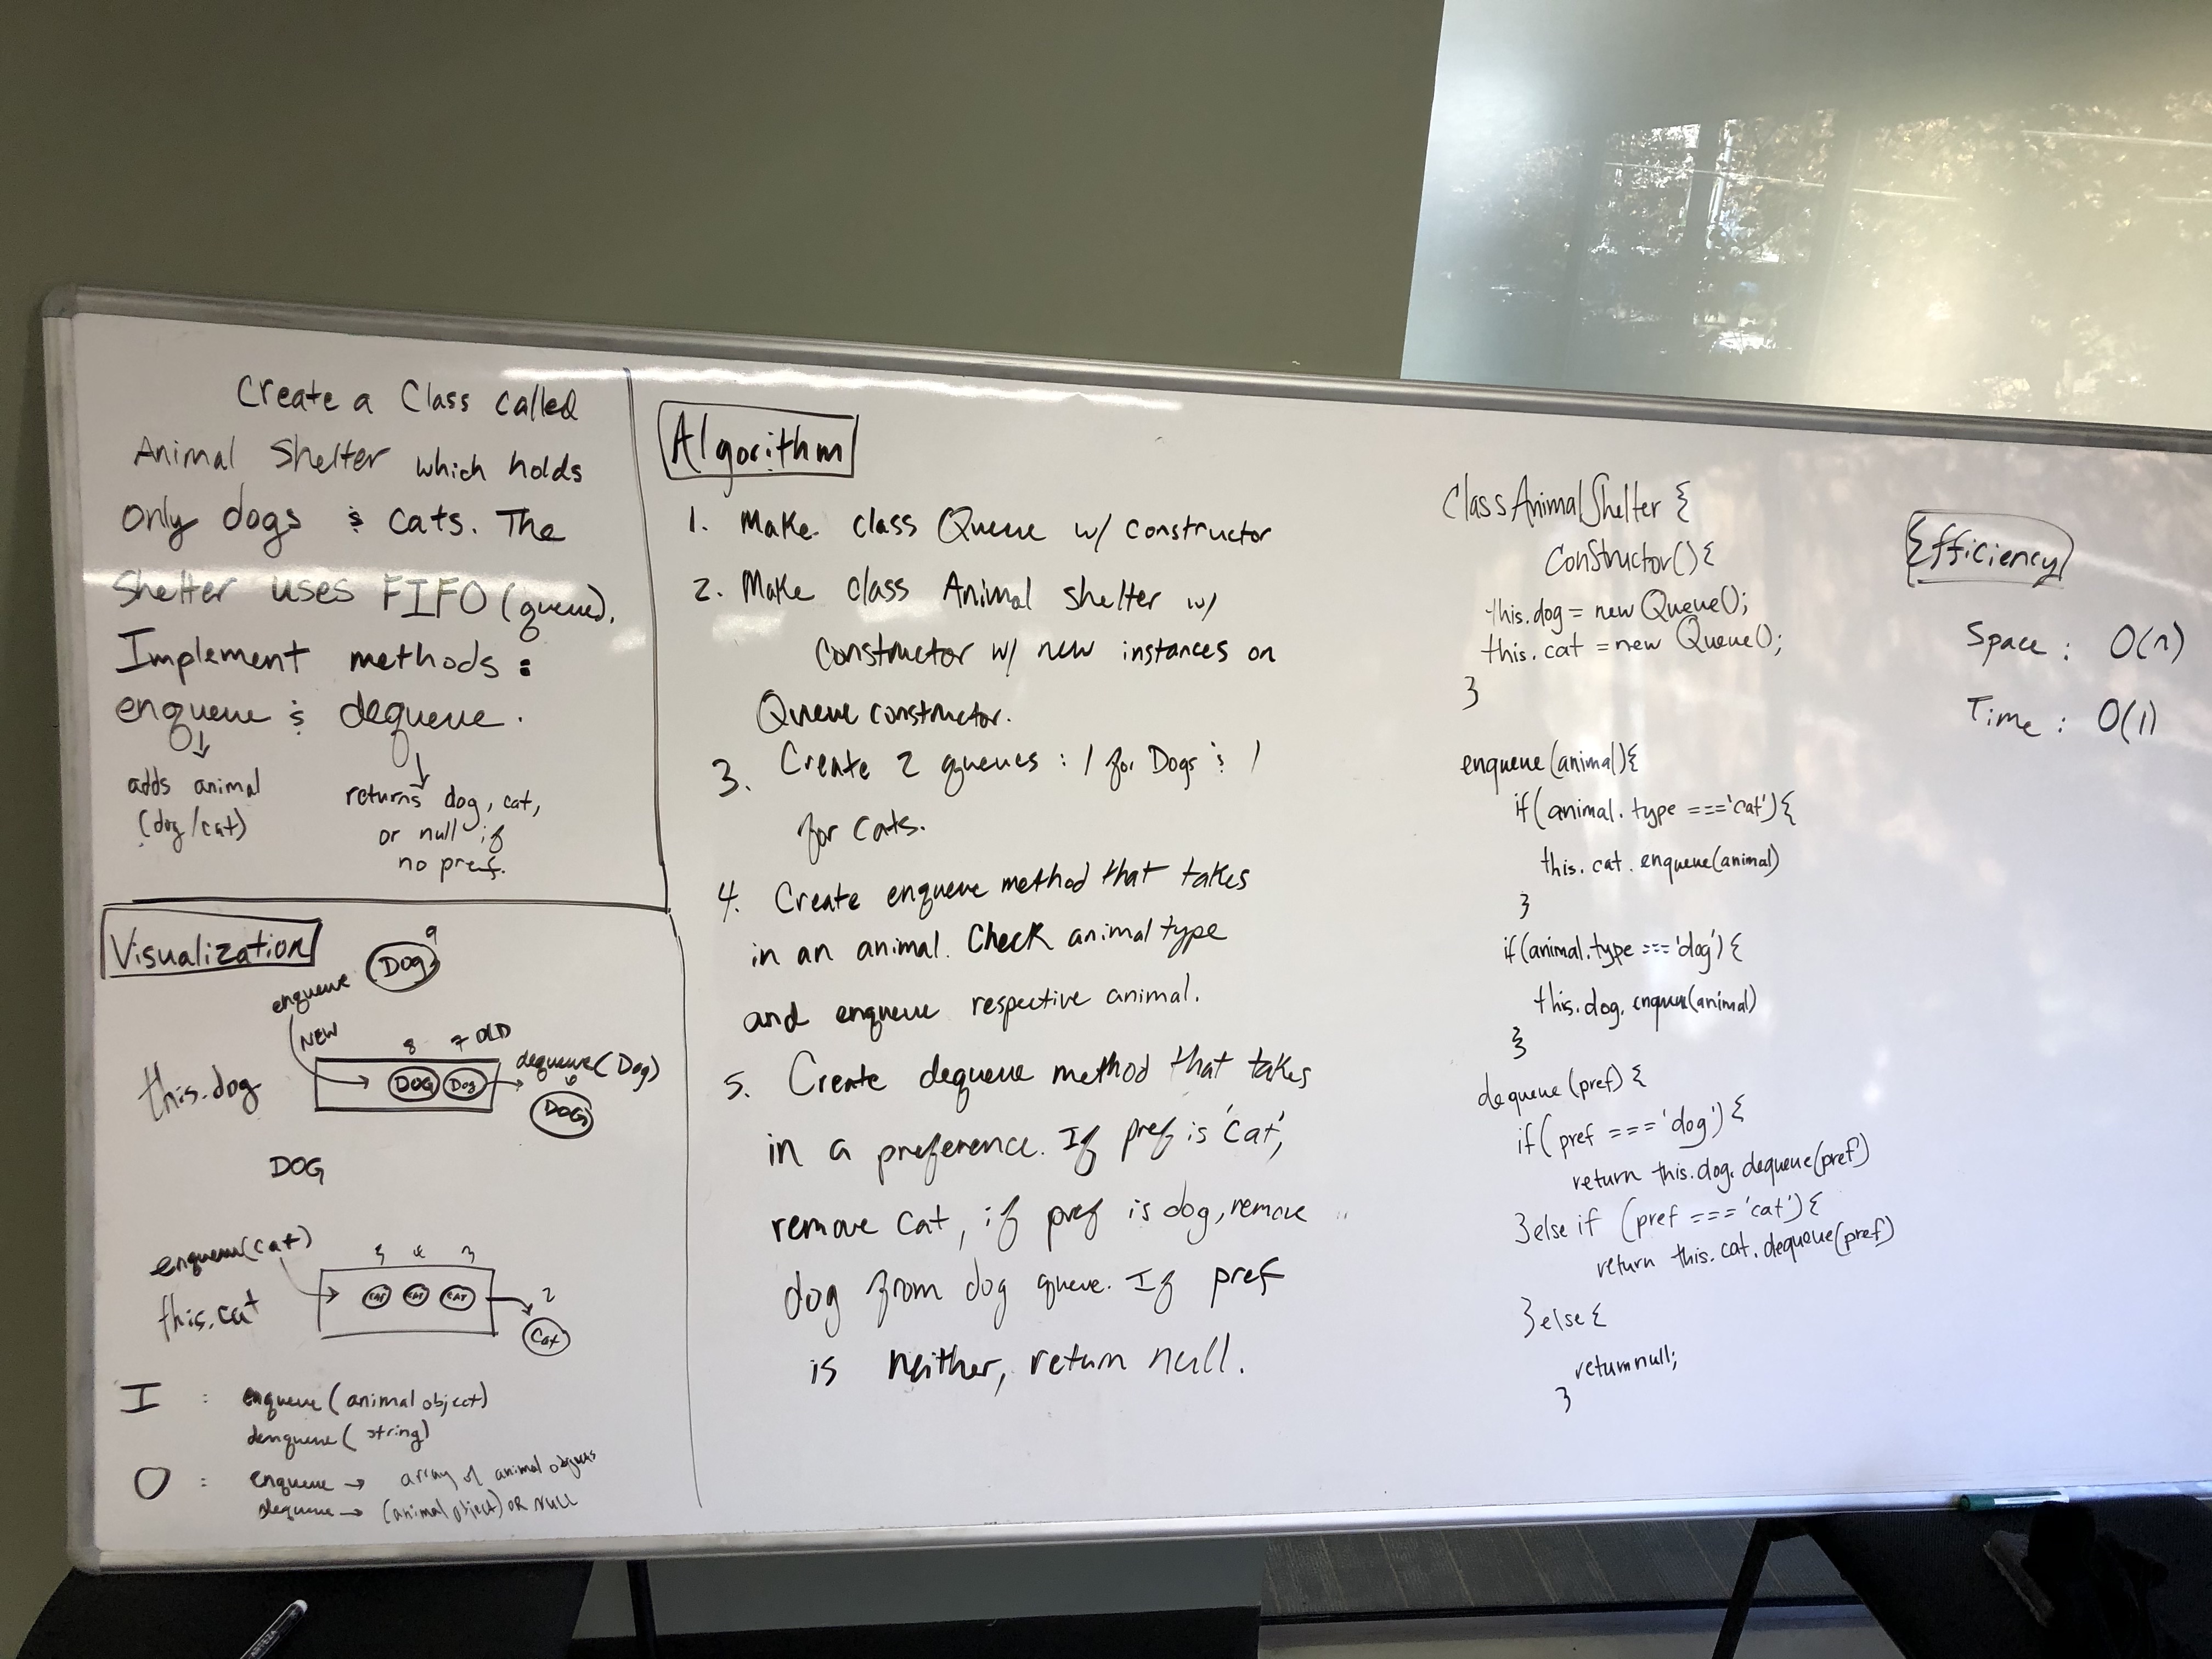 Create a Class called
Animal Shelter which holds
only dogs & cats. The
Shelter uses FIFO (queue).
Implement methods:
enqueue & dequeue.
adds animal
(dog/cat)
returns dog, cat,
or null if
no pref.
Visualization
9
Dog
enqueue
NEW
8 7 OLD
this.dog
DOG Dog
dequeue(Dog)
DOG
DOG
enqueue(cat)
5 4 3
this.cat
CAT CAT CAT
2
Cat
I : enqueue(animal object)
denqueue(string)
O : enqueue → array of animal objects
dequeue → (animal object) OR NULL
Algorithm
1. Make class Queue w/ constructor
2. Make class Animal shelter w/
constructor w/ new instances on
Queue constructor.
3. Create 2 queues : 1 for Dogs & 1
for cats.
4. Create enqueue method that takes
in an animal. Check animal type
and enqueue respective animal.
5. Create dequeue method that takes
in a preference. If pref is 'cat',
remove cat, if pref is dog, remove
dog from dog queue. If pref
is neither, return null.
Class AnimalShelter {
Constructor(){
this.dog = new Queue();
this.cat = new Queue();
}
enqueue(animal){
if(animal.type ==='cat'){
this.cat.enqueue(animal)
}
if(animal.type === 'dog'){
this.dog.enqueue(animal)
}
dequeue(pref){
if(pref === 'dog'){
return this.dog.dequeue(pref)
}else if (pref === 'cat'){
return this.cat.dequeue(pref)
}else{
return null;
}
Efficiency
Space : O(n)
Time : O(1)
ARTEZA